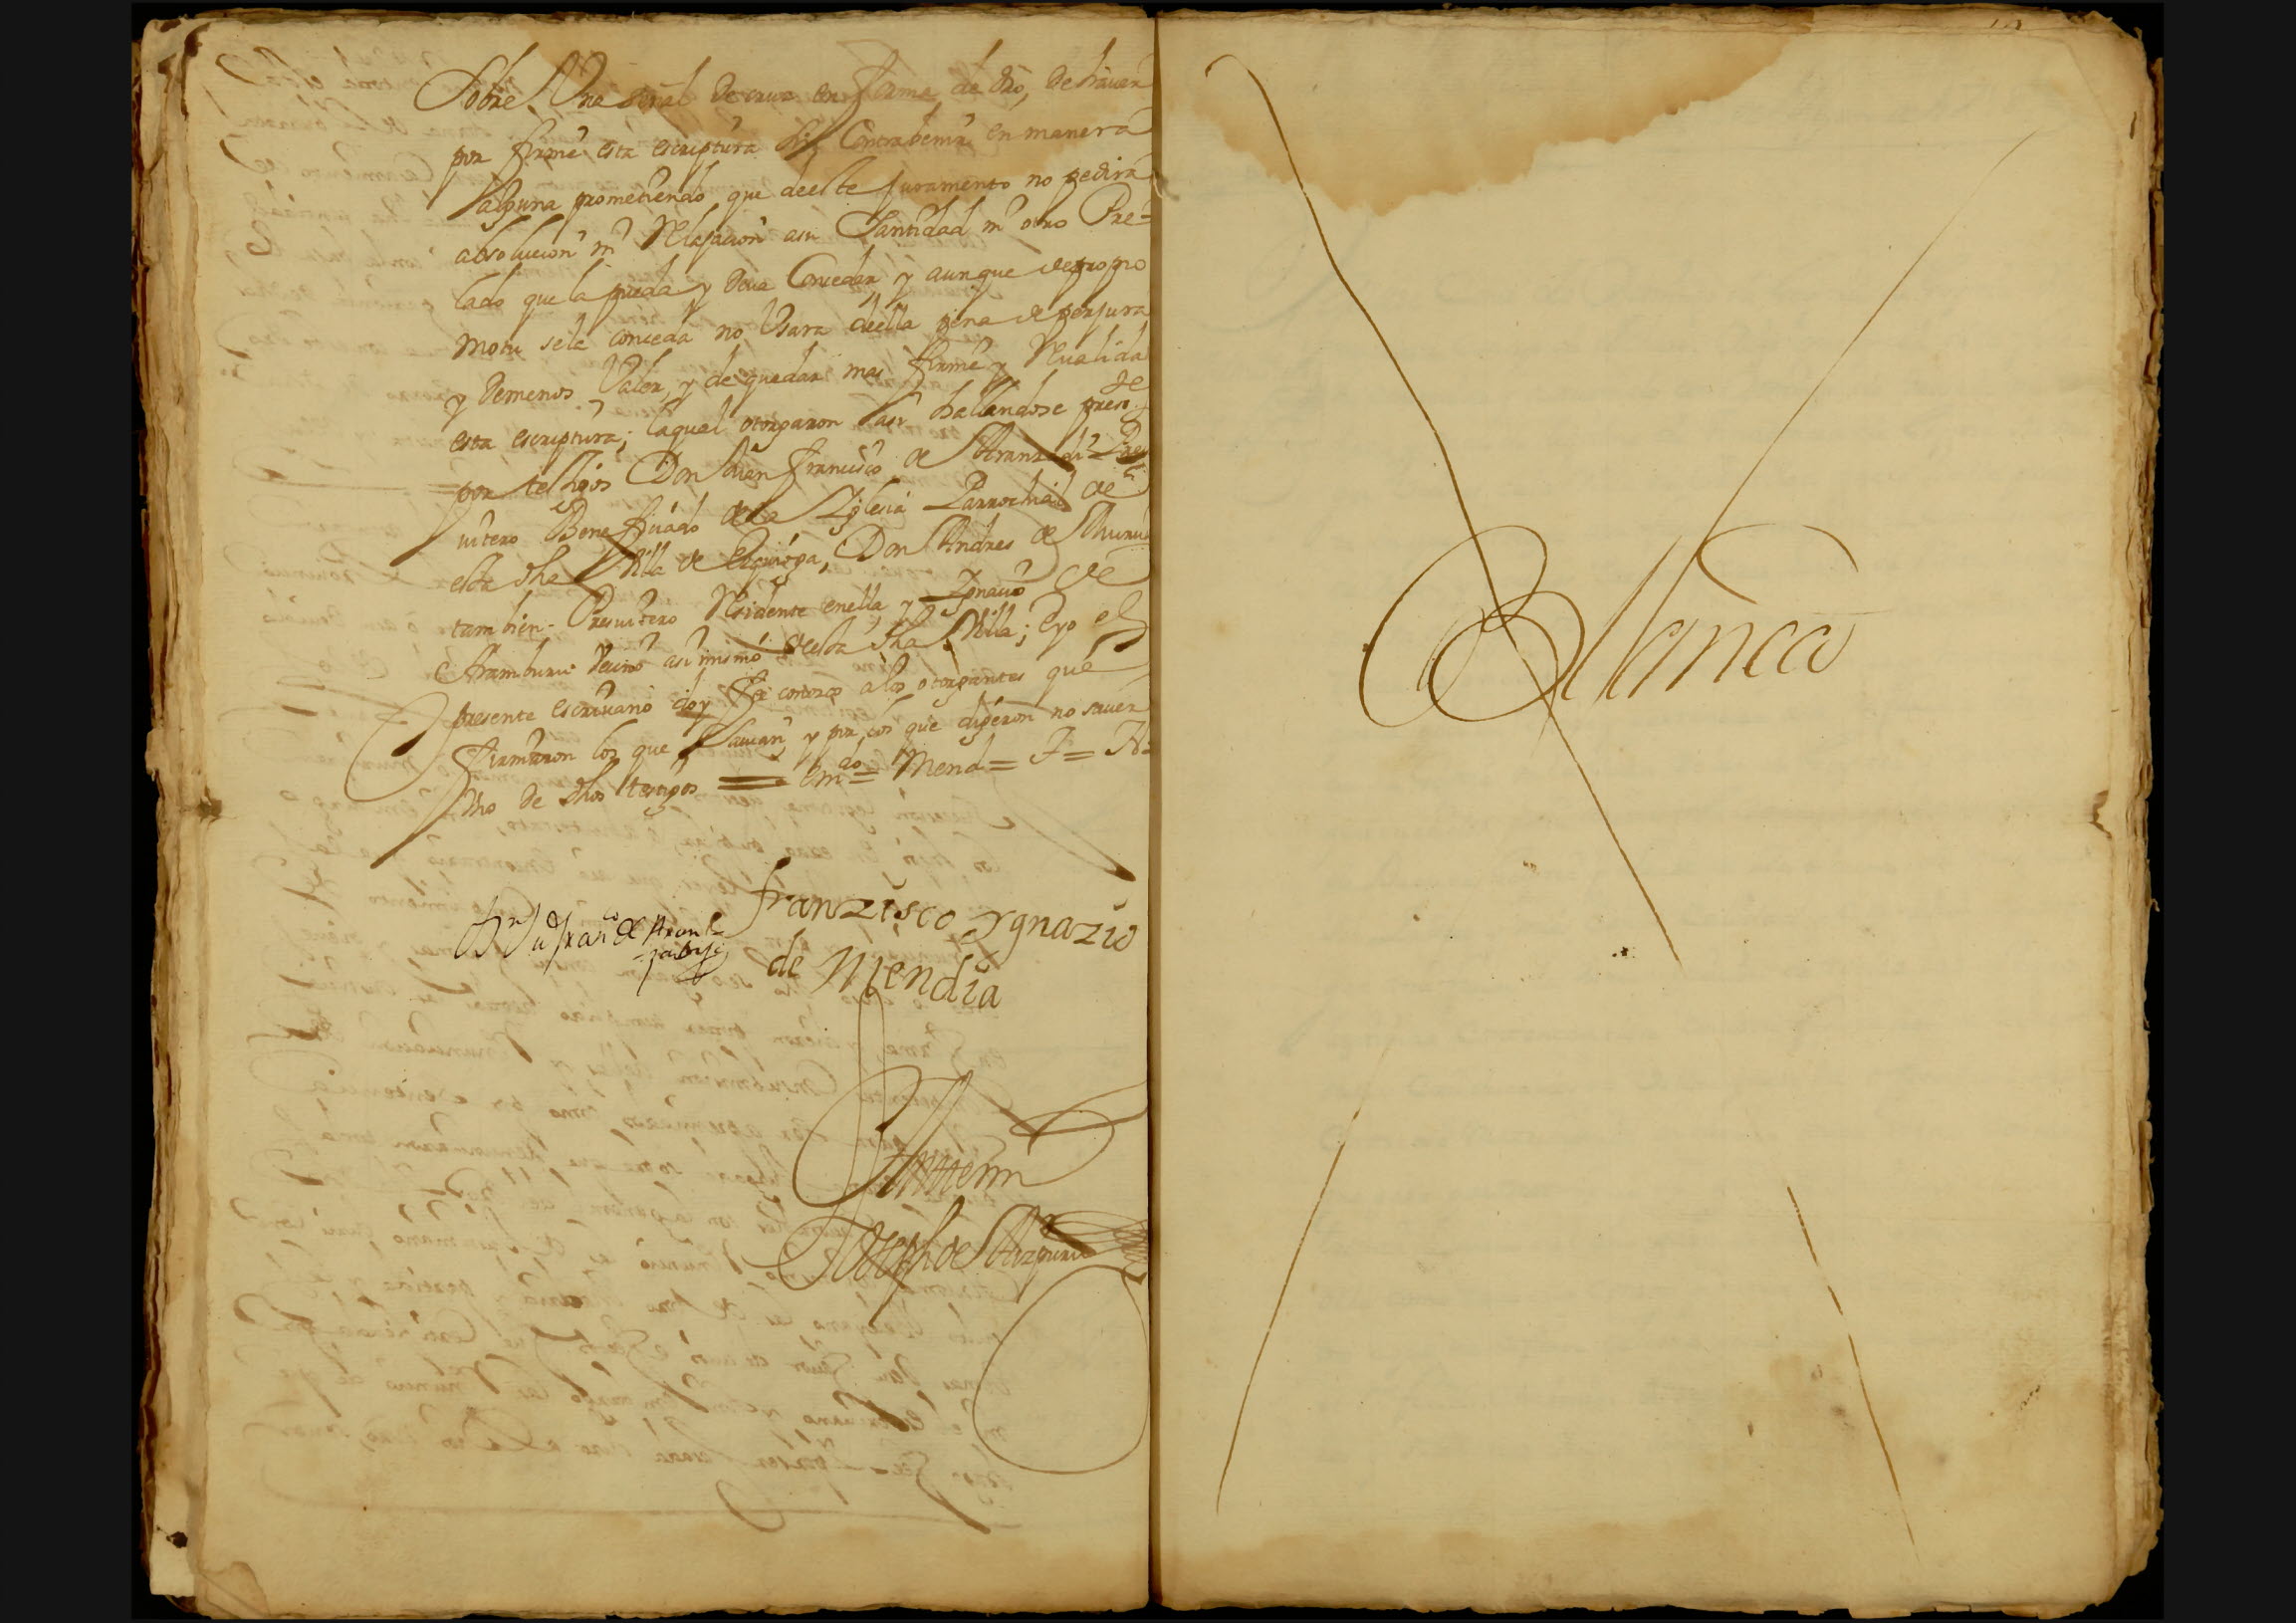 Sobre Una señal de cruz en forma de dro, de hauer
por firme esta escriptura sin Contrabenir en manera
alguna prometiendo que deeste juramento no pedira
absolucion ni Relajacion asu Santidad ni otro Pre-
lado que la pueda y deua Conceder, y aunque depropio
motu sele conceda no Usara deella pena de perjura
y demenos Valer, y de quedar mas firme y Reualida
esta escriptura; laqual otorgaron assi hallandose presn.te
por testigos Don Juan Francisco de Aranzadi Pres
uitero Beneficiado de la Iglesia Parrochial de
esta dha Villa de Ezquioga, Don Andres de
tambien Presuitero Residente enella, y Ignacio de
Aramburu Vecino asi mismo deesta dha Villa; Eyo el
presente escriuano doy fee conozco alos otorgantes que
firmaron los que sauian y por los que digeron no sauer
Vno de dhos testigos = em.do = Mend = F = A =
franzisco ygnazio
de Mendia
Antemi
Joseph de Aizpuru
Blanca